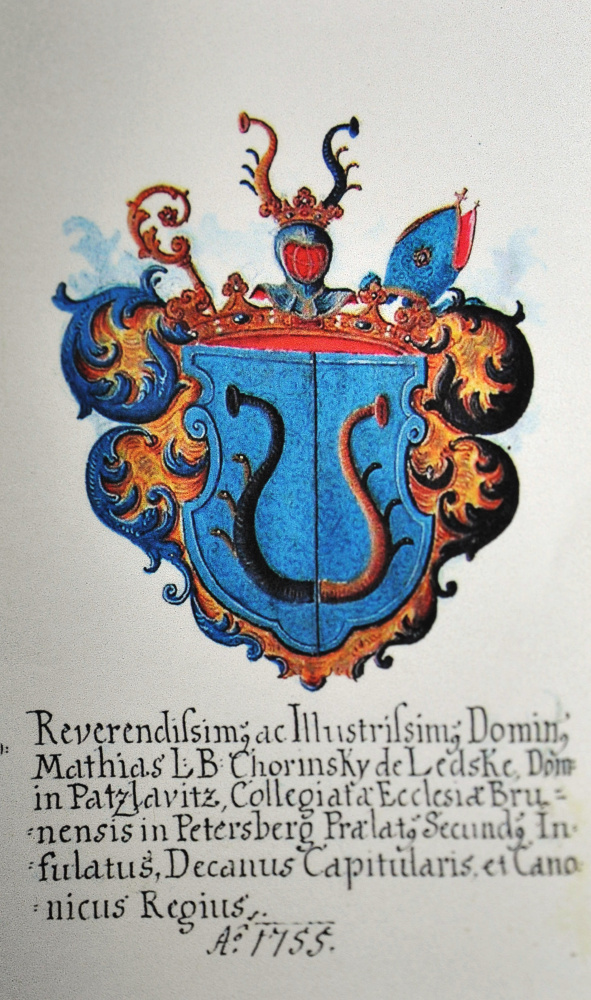 Reverendiſsimꝯ ac Illustriſsimꝯ Dominꝯ
Mathias L B Chorinsky de Ledske, Dom̄
in Patzlavitz, Collegiata Ecclesiæ Bru=
=nensis in Petersberg Prælatꝯ Secundꝯ In-
=fulatus, Decanus Capitularis, et Cano
=nicus Regius.
Aº 1755.